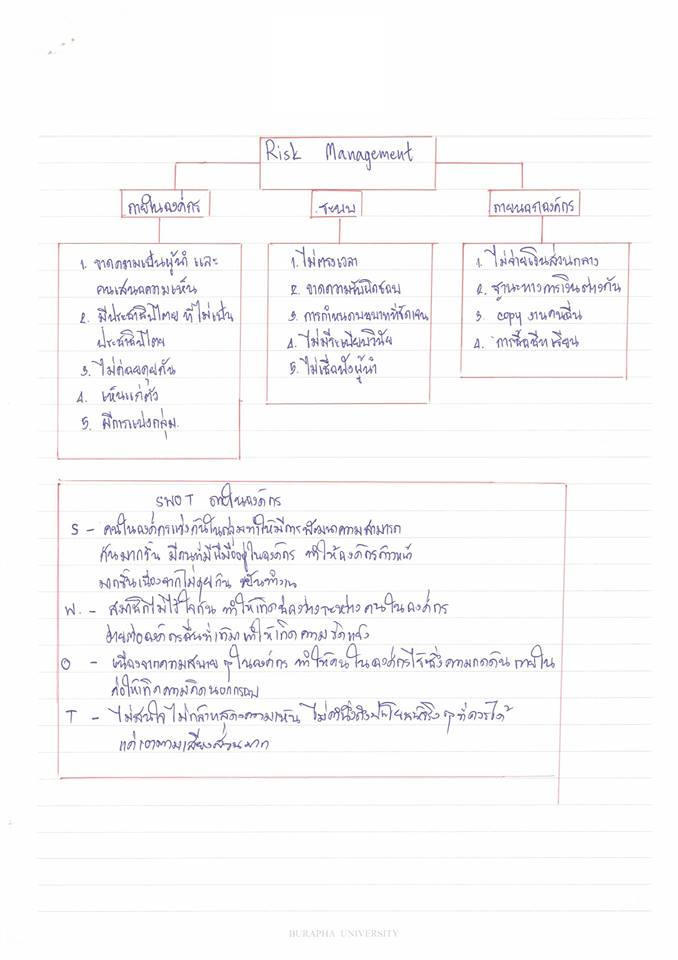 Risk Management
ภายในองค์กร
ระบบ
ภายนอกองค์กร
1. ขาดความเป็นผู้นำ และ
คนเสนอความเห็น
2. มีประชาธิปไตย ที่ไม่เป็น
ประชาธิปไตย
3. ไม่ค่อยคุยกัน
4. เห็นแก่ตัว
5. มีการแบ่งกลุ่ม.
1. ไม่ตรงเวลา
2. ขาดความรับผิดชอบ
3. การกำหนดบทบาทที่ชัดเจน
4. ไม่มีระเบียบวินัย
5. ไม่เชื่อฟังผู้นำ
1. ไม่จ่ายเงินส่วนกลาง
2. ฐานะทางการเงินต่างกัน
3. copy งานคนอื่น
4. การซื้อชีทเรียน
SWOT ภายในองค์กร
S - คนในองค์กรแข่งกันในกลุ่มทำให้มีการพัฒนาความสามารถ
กันมากขึ้น มีคนที่มีฝีมืออยู่ในองค์กร ทำให้องค์กรก้าวหน้า
มากขึ้นเนื่องจากไม่คุยกัน ขยันทำงาน
W. - สมาชิกไม่ไว้ใจกัน ทำให้เกิดช่องว่างระหว่างคนในองค์กร
ง่ายต่อองค์กรอื่นที่เข้ามาทำให้เกิดความขัดแย้ง
O - เนื่องจากความสบาย ๆ ในองค์กร ทำให้คนในองค์กรไร้ซึ่งความกดดันภายใน
ก่อให้เกิดความคิดนอกกรอบ
T - ไม่สนใจ ไม่กล้าแสดงความเห็น ไม่คำนึงถึงประโยชน์จริง ๆ ที่ควรได้
แต่เอาตามเสียงส่วนมาก
BURAPHA UNIVERSITY